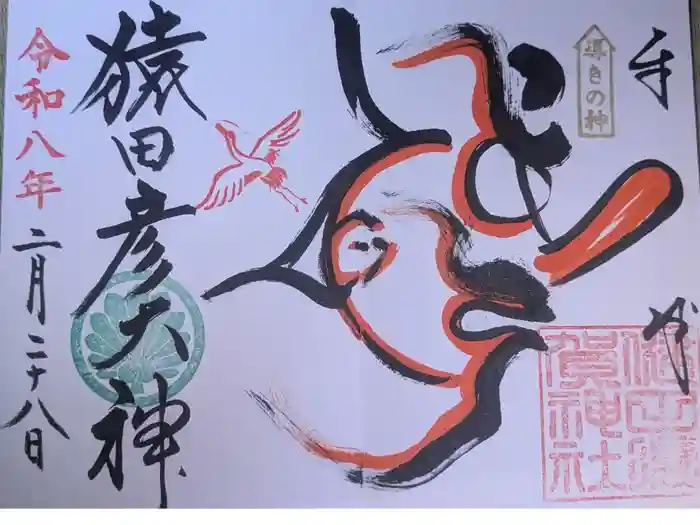 奉
導きの神
拝
猿田彦大神
令和八年
二月二十八日